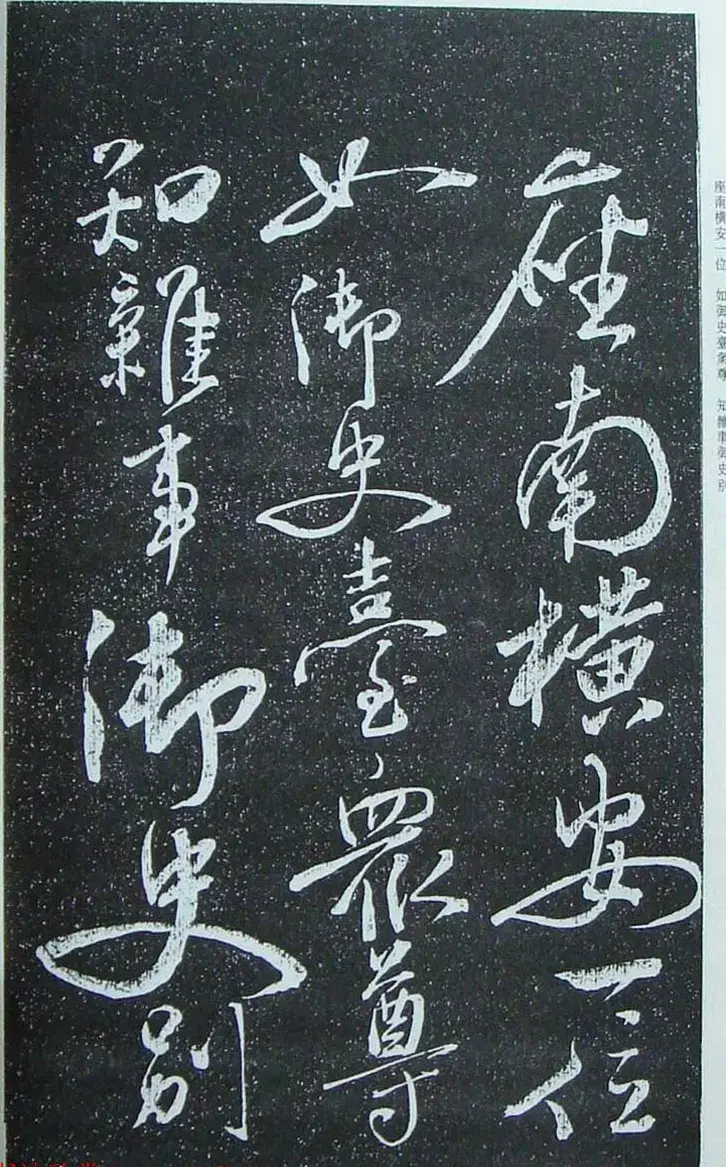 座南横安一位
如御史臺衆尊
知雜事御史別
座南横安一位 如御史臺衆尊 知雜事御史別